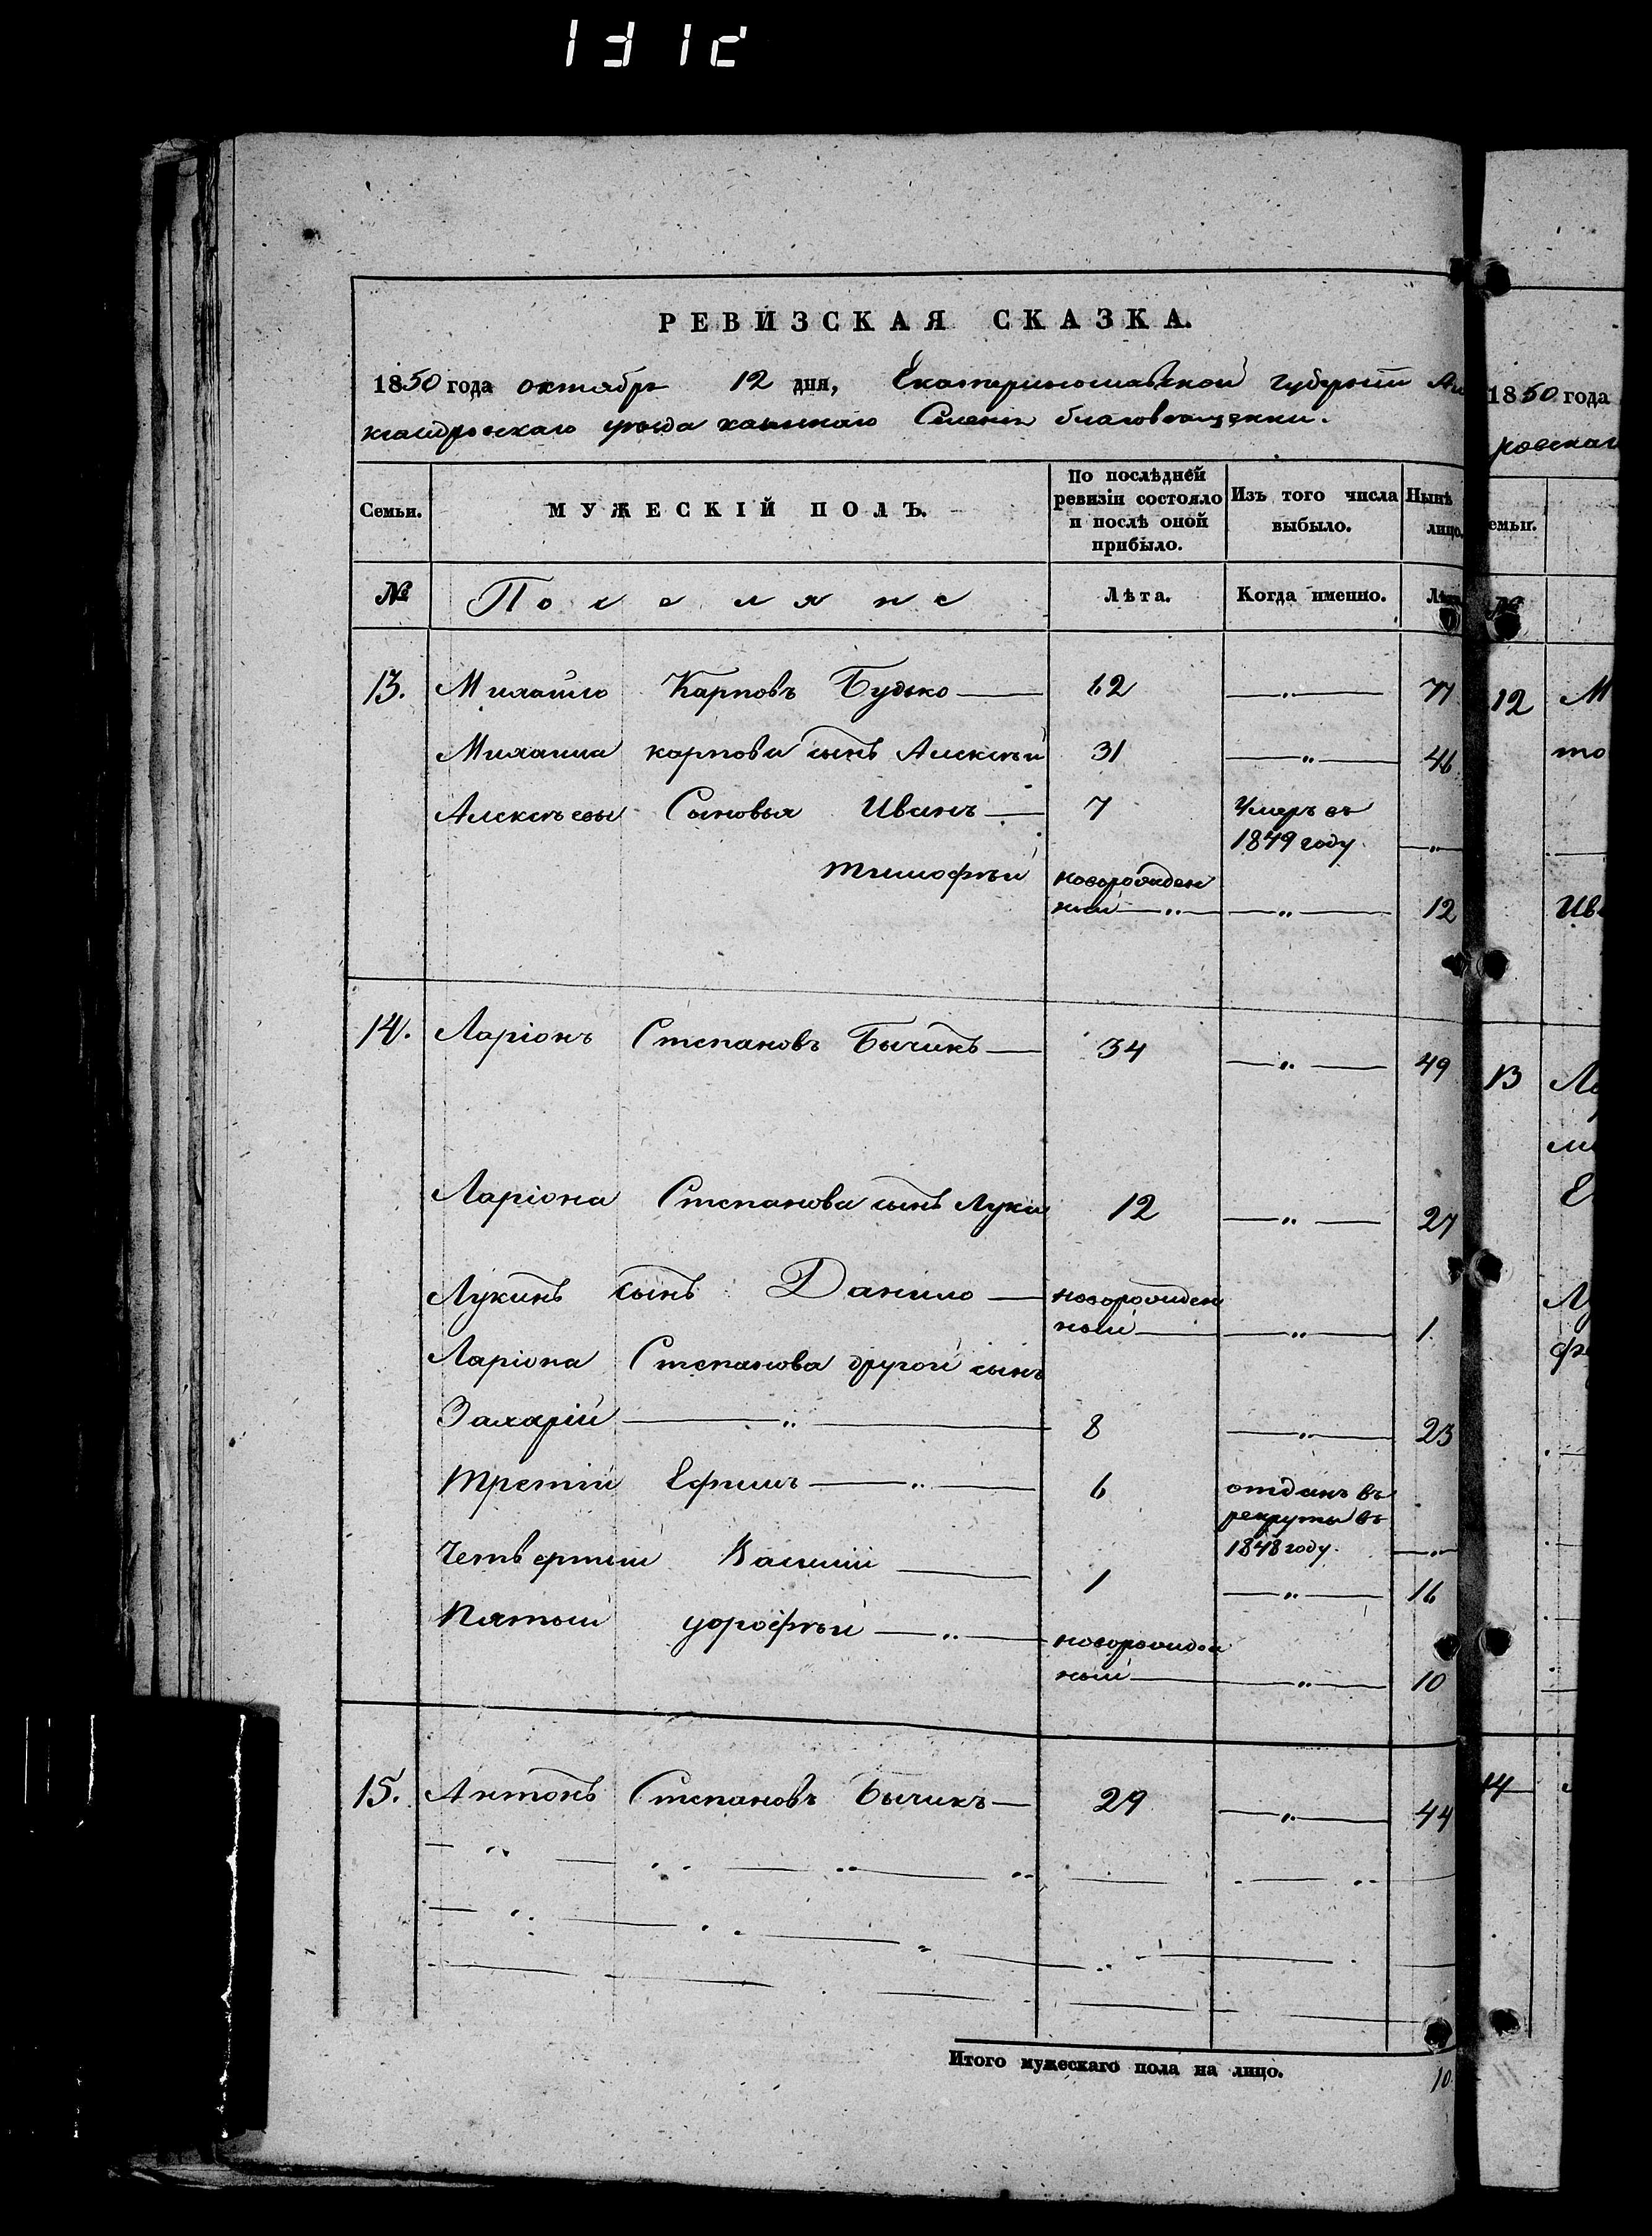 1312
РЕВИЗСКАЯ СКАЗКА.
1850 года октября 12 дня, Екатеринославской губернии Але
ксандровскаго уѣзда казеннаго Селенія благовѣщенки.
Семьи.
МУЖЕСКІЙ ПОЛЪ.
По послѣдней ревизіи состояло и послѣ оной прибыло.
Изъ того числа выбыло.
Нынѣ на лицо.
№ Поселяне Лѣта. Когда именно. Лѣта
13. Михайло Карповъ Будько — 62 —„— 77
Михаила карпова сынъ Алексѣй 31 —„— 46
Алексѣевы Сыновья Иванъ — 7 Умеръ въ
1849 году —„—
тимофѣй новорожден
ный —„— —„— 12
14. Ларіонъ Степановъ Бычикъ — 34 —„— 49
Ларіона Степанова сынъ Лука 12 —„— 27
Лукинъ сынъ Данило — новорожден
ный — —„— 1.
Ларіона Степанова другой сынъ
Захарій —„— 8 —„— 23
третій Ефимъ —„— 6 отданъ въ
рекруты въ
1848 году. —„—
Четвертый Василій — 1 —„— 16
Пятый дорофѣй —„— новорожден
ный — —„— 10
15. Антонъ Степановъ Бычикъ — 29 —„— 44
Итого мужескаго пола на лицо. 10
1850 года
ровскаг
емьи.
№
12 М
то
Ив
13
Е
14